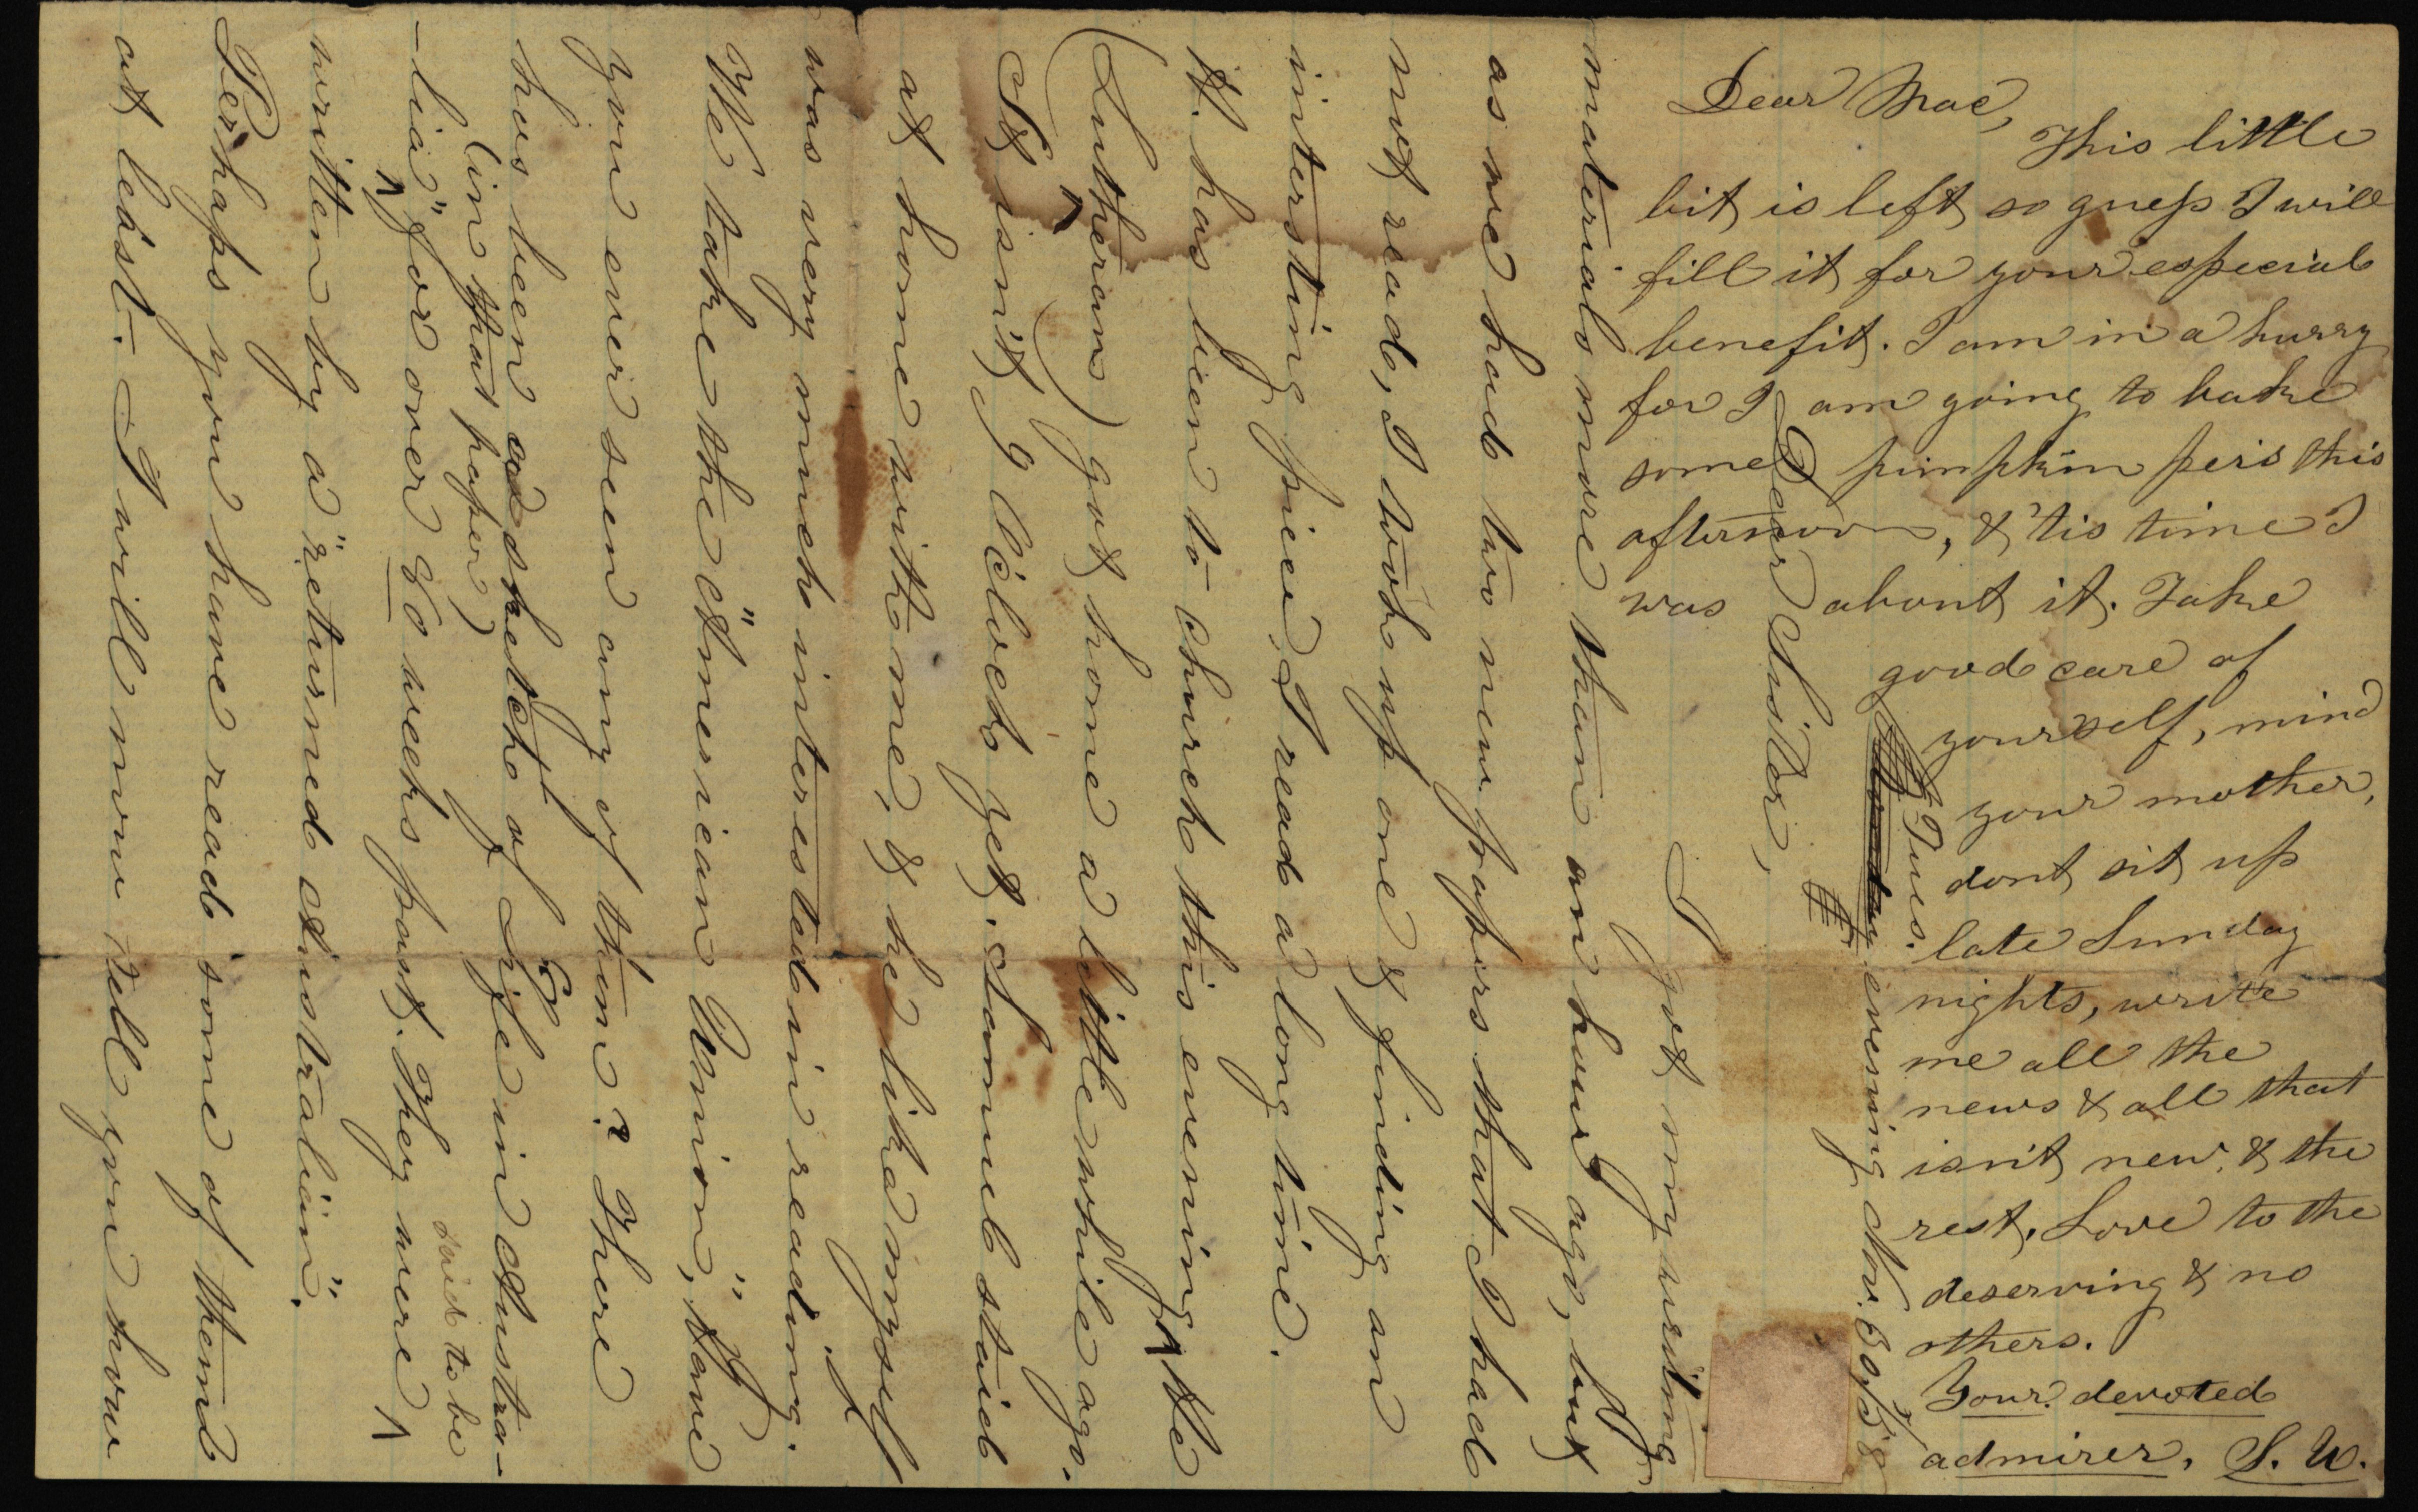 Dear Mac,
This little
bit is left so guess I will
fill it for your especial
benefit. I am in a hurry
for I am going to bake
some pumpkin peis this
afternoon, & 'tis time I
was about it. Take
good care of
yourself, mind
your mother,
dont sit up
late Sunday
nights, write
me all the
news & all that
isn't new, & the
rest. Love to the
deserving & no
others.
Your devoted
admirer, S. W.
Tues.
evening Nov. 30/58
Dear Sister,
I got my writing
materials more than an hour ago, but
as we had two new papers that I had
not read, I took up one & finding an
interesting piece, I read a long time.
H. has been to church this evening, ^ He
(Lutheran) got home a little while ago.
It isn't 9 O'clock yet. Samuel staid
at home with me, & he like myself
was very much interested in reading.
We take the "American Union," Have
you ever seen any of them? There
has been sketchs of Life in Austra-
(in that paper)
-lia" for over 80 weeks past. They were ^
said to be
written by a "returned Australian".
Perhaps you have read some of them
at least. I will now tell you how